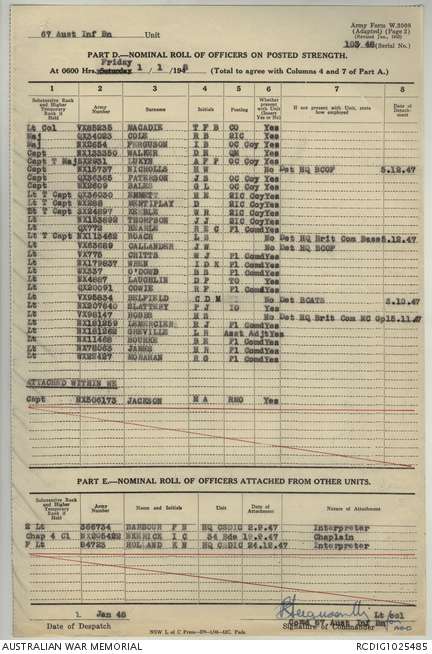 Army Form W.3008
(Adapted) (Page 2)
67 Aust Inf Bn Unit
103 48 (Serial No.)
PART D.—NOMINAL ROLL OF OFFICERS ON POSTED STRENGTH.
Friday
At 0600 Hrs. Saturday 1 / 1 /194 8 (Total to agree with Columns 4 and 7 of Part A.)
1 2 3 4 5 6 7 8
Substantive Rank and Higher Temporary Rank if Held Army Number Surname Initials Posting Whether present with Unit (Insert Yes or No) If not present with Unit, state how employed Date of Detach-ment
Lt Col VX85235 MACADIE T F B CO Yes
Maj QX34023 COLE R B 2IC Yes
Maj NX2654 FERGUSON I B OC Coy Yes
Capt NX133350 WALKER D R QM Yes
Capt T Maj SX2931 LUKYN A F P OC Coy Yes
Capt NX15737 NICHOLLS R W No Det HQ BCOF 5.12.47
Capt QX36365 PATERSON J S OC Coy Yes
Capt WX2609 BALES G L OC Coy Yes
Lt T Capt QX36030 EMMETT H R 2IC Coy Yes
Lt T Capt VX288 MENTIPLAY D 2IC Coy Yes
Lt T Capt SX24897 KEEBLE W R 2IC Coy Yes
Lt VX153892 THOMPSON J J 2IC Coy Yes
Lt QX772 HEARLE R E C Pl Comd Yes
Lt T Capt NX115462 ROACH L S No Det HQ Brit Com Base 5.12.47
Lt VX63689 CALLANDER J W No Det HQ BCOF
Lt VX775 CHITTS W J Pl Comd Yes
Lt NX179837 WREN I D K Pl Comd Yes
Lt VX337 O'DOWD B S Pl Comd Yes
Lt NX4887 LAUGHLIN D P TO Yes
Lt QX20091 COWIE R F Pl Comd Yes
Lt VX95834 BELFIELD C D M No Det BCATS 3.10.47
Lt NX207640 SLATTERY P J IO Yes
Lt VX98147 HODER M S No Det HQ Brit Com NC Gp 15.11.47
Lt NX181259 LEMERCIER R J Pl Comd Yes
Lt NX181262 GREVILLE L R Asst Adjt Yes
Lt NX11468 BOURKE B E Pl Comd Yes
Lt NX78063 JAMES M R Pl Comd Yes
Lt WX28427 MORAHAN R G Pl Comd Yes
ATTACHED WITHIN WE
Capt NX506173 JACKSON M A RMO Yes
PART E.—NOMINAL ROLL OF OFFICERS ATTACHED FROM OTHER UNITS.
Substantive Rank and Higher Temporary Rank if Held Army Number Name and Initials Unit Date of Attachment Nature of Attachment
S Lt 366734 BARBOUR F N HQ CSDIC 2.9.47 Interpreter
Chap 4 Cl NX205422 NERRICK I C 34 Bde 19.9.47 Chaplain
F Lt 54723 HOLLAND K N HQ CSDIC 24.12.47 Interpreter
1. Jan 48
Lt/Col
Comd 67 Aust Inf Bn
Date of Despatch Signature of Commander
AUSTRALIAN WAR MEMORIAL RCDIG1025485